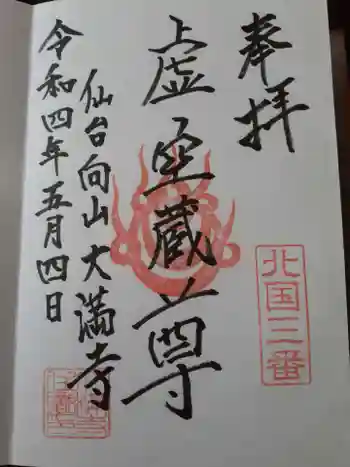 奉拝
北国三番
虚空蔵尊
仙台向山大満寺
令和四年五月四日